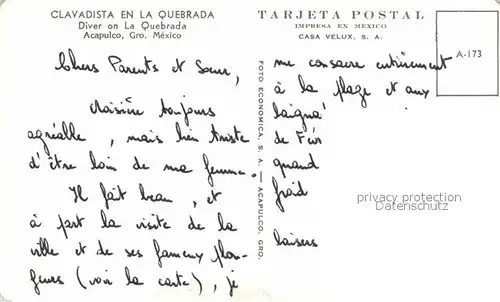 CLAVADISTA EN LA QUEBRADA
Diver on La Quebrada
Acapulco, Gro. México
Chers Parents et Soeur,
Croisière toujours
agréable, mais bien triste
d'être loin de ma femme.
Il fait beau, et
à part la visite de la
ville et de ses fameux plon-
geurs (voir la carte), je
FOTO ECONOMICA, S. A. — ACAPULCO, GRO.
TARJETA POSTAL
IMPRESA EN MEXICO
CASA VELUX, S. A.
A-173
me consacre entièrement
à la plage et aux
de
quand
froid
baisers
privacy protection
Datenschutz